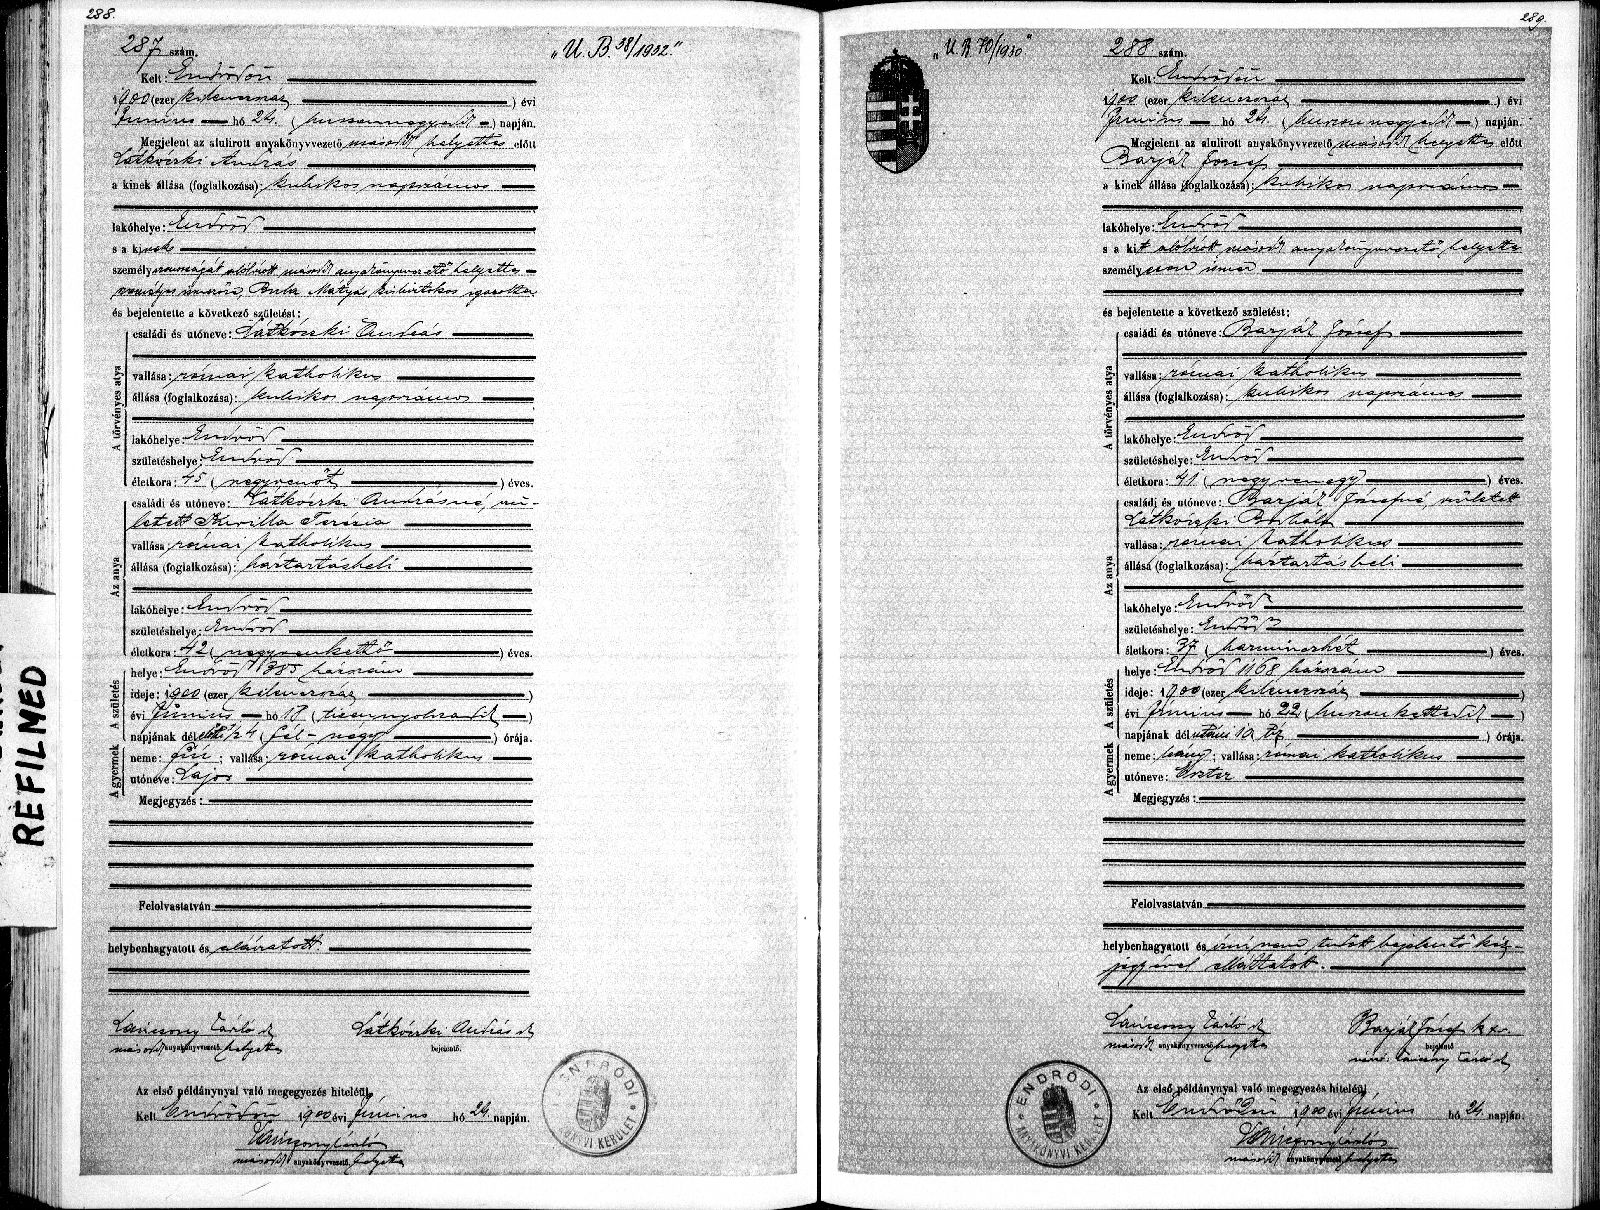 288.
287 szám.
„U. B. 38/1932."
Kelt: Endrődön
1900 (ezer kilencszáz ) évi
Június hó 24. ( huszonnegyedik ) napján.
Megjelent az alulirott anyakönyvvezető másodh helyettes előtt
Látkóczki András
a kinek állása (foglalkozása): kubikos napszámos
lakóhelye: Endrőd
s a kinek
személyazonosságát alólirott másodh anyakönyvvezető helyettes
személyes ismerőse, Bula Mátyás kisbirtokos igazolta
és bejelentette a következő születést:
A törvényes atya
családi és utóneve: Látkóczki András
vallása: római katholikus
állása (foglalkozása): kubikos napszámos
lakóhelye: Endrőd
születéshelye: Endrőd
életkora: 45 ( negyvenöt ) éves.
Az anya
családi és utóneve: Látkóczki Andrásné, szü-
letett Kurilla Terézia
vallása: római katholikus
állása (foglalkozása): háztartásbeli
lakóhelye: Endrőd
születéshelye: Endrőd
életkora: 42 ( negyvenkettő ) éves.
A születés
helye: Endrőd 1385 házszám
ideje: 1900 (ezer kilencszáz )
évi Június hó 18 ( tizennyolczadik )
napjának délelőtti 1/24 ( fél-négy ) órája.
A gyermek
neme: fiú; vallása: római katholikus
utóneve: Lajos
Megjegyzés:
Felolvastatván
helybenhagyatott és aláiratott.
Lánczony László Látkóczki András
másodh anyakönyvvezető helyettes bejelentő.
Az első példánynyal való megegyezés hiteléül
Kelt Endrődön 1900 évi Június hó 24. napján.
másodh anyakönyvvezető helyettes
ENDRŐDI
KERÜLET
REFILMED
289.
„U. B. 70/1930"
288 szám.
Kelt: Endrődön
1900 (ezer kilencszáz ) évi
Június hó 24. ( huszonnegyedik ) napján.
Megjelent az alulirott anyakönyvvezető másodh helyettes előtt
Barját József
a kinek állása (foglalkozása): kubikos napszámos
lakóhelye: Endrőd
s a kit alólirott másodh anyakönyvvezető helyettes
személyesen ismer
és bejelentette a következő születést:
A törvényes atya
családi és utóneve: Barját József
vallása: római katholikus
állása (foglalkozása): kubikos napszámos
lakóhelye: Endrőd
születéshelye: Endrőd
életkora: 41 ( negyvenegy ) éves.
Az anya
családi és utóneve: Barját Józsefné, született
Látkóczki Borbála
vallása: római katholikus
állása (foglalkozása): háztartásbeli
lakóhelye: Endrőd
születéshelye: Endrőd
életkora: 37 ( harminczhét ) éves.
A születés
helye: Endrőd 1168 házszám
ideje: 1900 (ezer kilencszáz )
évi Június hó 22 ( huszonkettedik )
napjának délutáni 10 tíz ) órája.
A gyermek
neme: leány; vallása: római katholikus
utóneve: Eszter
Megjegyzés:
Felolvastatván
helybenhagyatott és írni nem tudott bejelentő kéz-
jegyével elláttatott.
Barját József
másodh anyakönyvvezető helyettes bejelentő
Az első példánynyal való megegyezés hiteléül
Kelt Endrődön 1900 évi Június hó 24. napján.
másodh anyakönyvvezető helyettes
ENDRŐDI
ANYAKÖNYVI KERÜLET